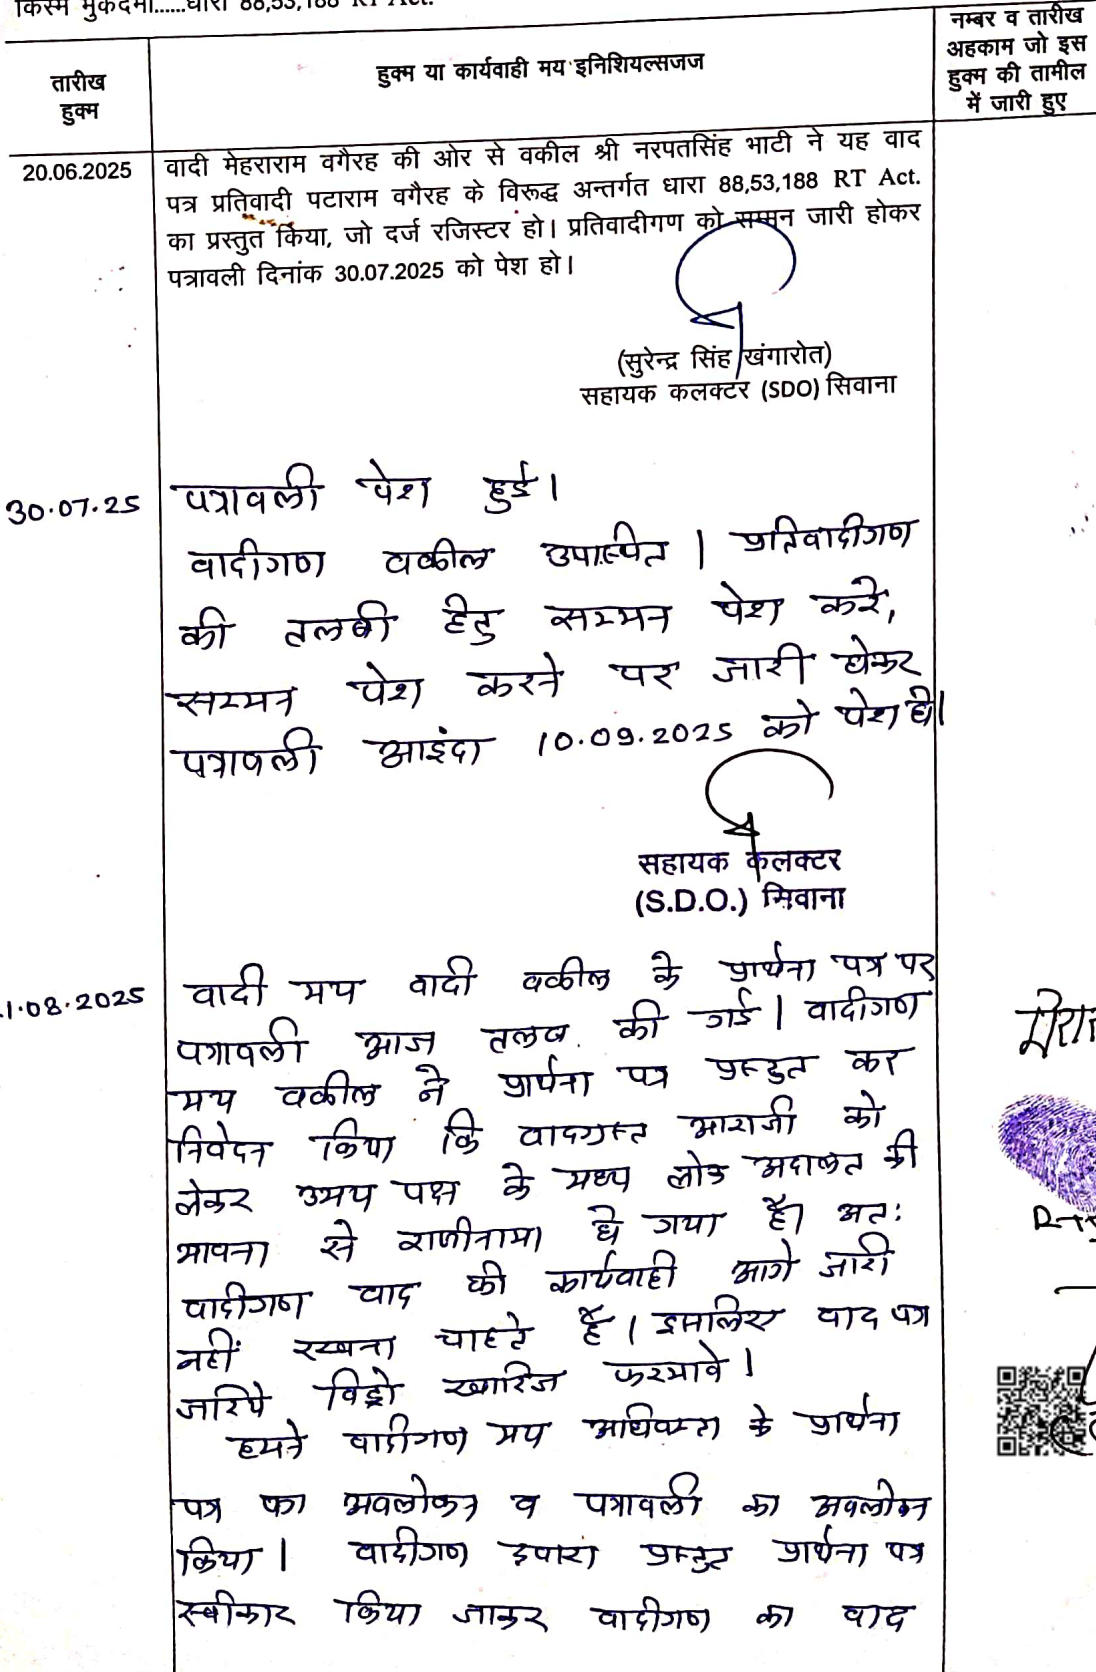 किस्म मुकदमा......धारा 88,53,188 RT Act.
तारीख
हुक्म
हुक्म या कार्यवाही मय इनिशियल्सजज
नम्बर व तारीख
अहकाम जो इस
हुक्म की तामील
में जारी हुए
20.06.2025
वादी मेहराराम वगैरह की ओर से वकील श्री नरपतसिंह भाटी ने यह वाद
पत्र प्रतिवादी पटाराम वगैरह के विरूद्ध अन्तर्गत धारा 88,53,188 RT Act.
का प्रस्तुत किया, जो दर्ज रजिस्टर हो। प्रतिवादीगण को सम्मन जारी होकर
पत्रावली दिनांक 30.07.2025 को पेश हो।
(सुरेन्द्र सिंह खंगारोत)
सहायक कलक्टर (SDO) सिवाना
30.07.25
पत्रावली पेश हुई।
वादीगण वकील उपस्थित । प्रतिवादीगण
की तलबी हेतु सम्मन पेश करे,
सम्मन पेश करने पर जारी होकर
पत्रावली आइंदा 10.09.2025 को पेश हो।
सहायक कलक्टर
(S.D.O.) सिवाना
1.08.2025
वादी मय वादी वकील के प्रार्थना पत्र पर
पत्रावली आज तलब की गई । वादीगण
मय वकील ने प्रार्थना पत्र प्रस्तुत कर
निवेदन किया कि वादग्रस्त आराजी को
लेकर उभय पक्ष के मध्य लोक अदालत की
भावना से राजीनामा हो गया है। अतः
वादीगण वाद की कार्यवाही आगे जारी
नहीं रखना चाहते है । इसलिए वाद पत्र
जरिये विड्रो खारिज फरमावे ।
हमने वादीगण मय अधिवक्ता के प्रार्थना
पत्र का अवलोकन व पत्रावली का अवलोकन
किया । वादीगण द्वारा प्रस्तुत प्रार्थना पत्र
स्वीकार किया जाकर वादीगण का वाद